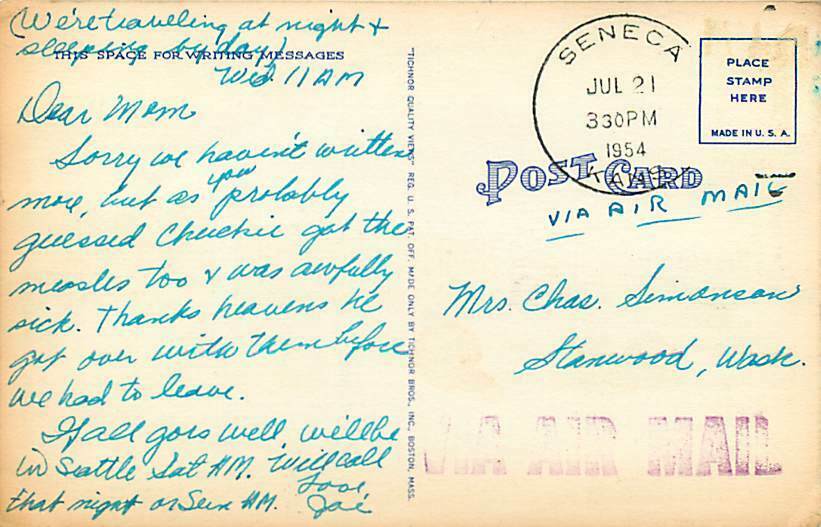 (We're traveling at night &
sleeping by day)
THIS SPACE FOR WRITING MESSAGES
Wed. 11 AM
Dear Mom
Sorry we haven't written
more, but as you probably
guessed Chuckie got the
measles too & was awfully
sick. Thanks heavens he
got over with them before
we had to leave.
If all goes well, we'll be
in Seattle Sat AM. Will call
that night or Sun AM.
Love
"TICHNOR QUALITY VIEWS" REG. U. S. PAT. OFF. MADE ONLY BY TICHNOR BROS., INC., BOSTON, MASS.
SENECA
JUL 21
330PM
1954
KANS.
PLACE
STAMP
HERE
MADE IN U. S. A.
POST CARD
VIA AIR MAIL
Mrs. Chas. Simonson
Stanwood, Wash.
VIA AIR MAIL